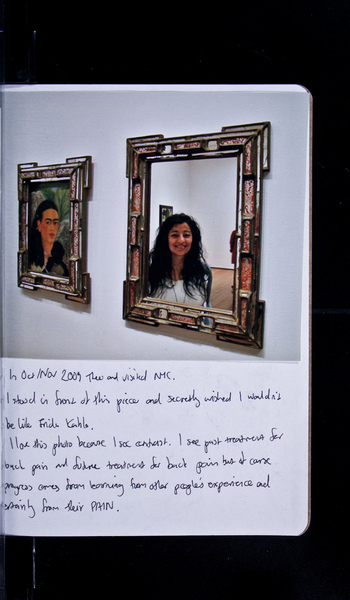 In Oct/Nov 2009 Theo and visited NYC.
I stood in front of this piece and secretly wished I wouldn't
be like Frida Kahlo.
I love this photo because I see contrast. I see past treatment for
back pain and future treatment for back pain but of course
progress comes from learning from other people's experience and
certainly from their PAIN.